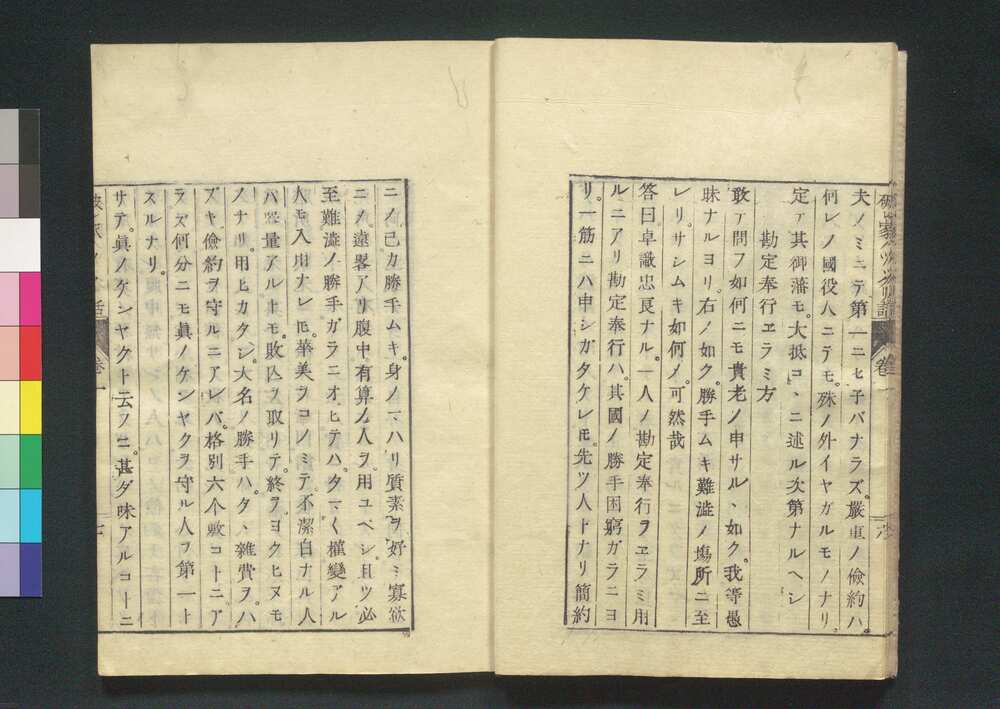 夫ノミニテ第一ニセ子バナラズ。嚴重ノ儉約ハ。
何レノ國役人ニテモ。殊ノ外イヤガルモノナリ
定テ其御藩モ。大抵コヽニ述ル次第ナルヘシ
勘定奉行ヱラミ方
敢テ問フ如何ニモ貴老ノ申サルヽ如ク。我等愚
昧ナルヨリ。右ノ如ク。勝手ムキ難澁ノ塲所ニ至
レリ。サシムキ如何ノ可然哉
答曰卓識忠良ナル。一人ノ勘定奉行ヲヱラミ用
ルニアリ勘定奉行ハ。其國ノ勝手困窮ガラニヨ
リ。一筋ニハ申シガタケレ𪜈。先ツ人トナリ簡約
ニノ己カ勝手ムキ。身ノマハリ質素ヲ好ミ寡欲
ニノ。遠畧アリ腹中有算ノ人ヲ。用ユベシ。且ツ必
至難澁ノ勝手ガラニオヒテハ。タマ〱權變アル
人モ入用ナレ𪜈。華美ヲコノミテ。不潔白ナル人
ハ。器量アルトモ。敗亡ヲ取リテ。終ヲヨクヒヌモ
ノナリ。用ヒカタシ。大名ノ勝手ハ。タヽ雜費ヲ。ハ
ズキ儉約ヲ守ルニアレバ。格別六个敷コトニア
ラズ。何分ニモ眞ノケンヤクヲ守ル人ヲ第一ト
スルナリ。
サテ。眞ノケンヤクト云フニ。甚ダ味アルコトニ
卷一